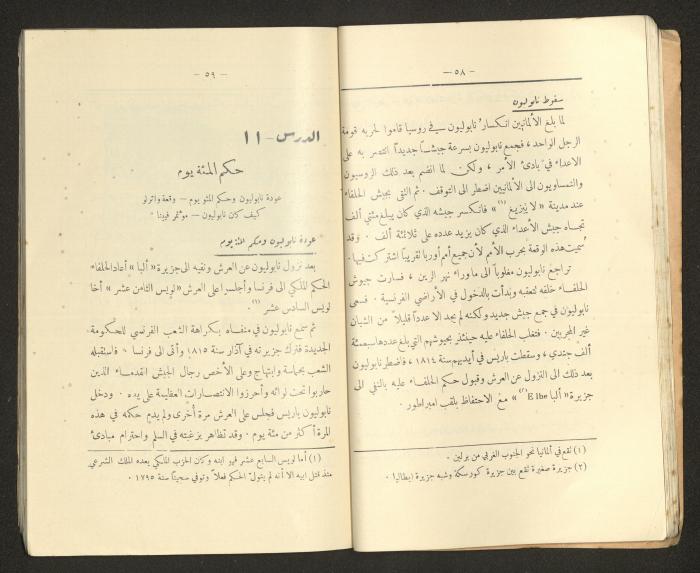 — ٥٨ —
سقوط نابوليون
لما بلغ الألمانيين انكسار نابوليون في روسيا قاموا لحربه قومة
الرجل الواحد، فجمع نابوليون بسرعة جيشاً جديداً انتصر به على
الاعداء في بادئ الأمر، ولكن لما انضم بعد ذلك الروسيون
والنمساويون الى الألمانيين اضطر الى التوقف. ثم التقى بجيش الحلفاء
عند مدينة «لايبزيغ (١)» فانكسر جيشه الذي كان يبلغ مئتي ألف
تجاه جيش الأعداء الذي كان يزيد عدده على ثلاثمئة ألف. وقد
سميت هذه الوقعة بحرب الأمم لأن جميع أمم أوربا تقريباً اشتركت فيها.
تراجع نابوليون مغلوباً الى ماوراء نهر الرين، فسارت جيوش
الحلفاء خلفه لتعقبه وبدأت بالدخول في الأراضي الفرنسية. فسعى
نابوليون في جمع جيش جديد ولكنه لم يجد الا عدداً قليلاً من الشبان
غير المجربين. فتغلب الحلفاء عليه حينئذ بجيوشهم التي بلغ عددها سبعمئة
ألف جندي، وسقطت باريس في أيديهم سنة ١٨١٤، فاضطر نابوليون
بعد ذلك الى النزول عن العرش وقبول حكم الحلفاء عليه بالنفي الى
جزيرة «ألبا Elbe (٢)» مع الاحتفاظ بلقب امبراطور.
(١) تقع في المانيا نحو الجنوب الغربي من برلين.
(٢) جزيرة صغيرة تقع بين جزيرة كورسكة وشبه جزيرة ايطاليا.
— ٥٩ —
الدرس - ١١
حكم المئة يوم
عودة نابوليون وحكم المئو يوم — وقعة واترلو
كيف كان نابوليون — مؤتمر فيينا
عودة نابوليون وحكم المئة يوم
بعد نزول نابوليون عن العرش ونفيه الى جزيرة «ألبا» أعاد الحلفاء
الحكم الملكي الى فرنسا وأجلسوا على العرش «لويس الثامن عشر» أخا
لويس السادس عشر (١).
ثم سمع نابوليون في منفاه بكراهة الشعب الفرنسي للحكومة
الجديدة فترك جزيرته في آذار سنة ١٨١٥ وأتى الى فرنسا، فاستقبله
الشعب بحماسة وابتهاج وعلى الأخص رجال الجيش القدماء الذين
حاربوا تحت لوائه وأحرزوا الانتصارات العظيمة على يده. ودخل
نابوليون باريس فجلس على العرش مرة أخرى ولم يدم حكمه في هذه
المرة أكثر من مئة يوم. وقد تظاهر برغبته في السلم واحترام مبادئ
(١) أما لويس السابع عشر فهو ابنه وكان الحزب الملكي يعده الملك الشرعي
منذ قتل ابيه الا أنه لم يتول الحكم فعلاً وتوفي سجيناً سنة ١٧٩٥.